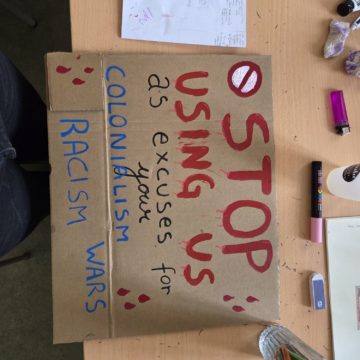 STOP
USING US
as excuses for
your
COLONIALISM
RACISM WARS